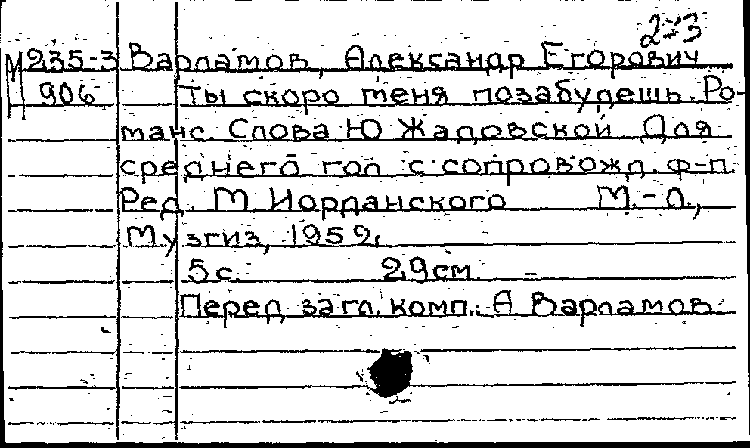 2-3
М235-3 Варламов, Александр Егорович
906 Ты скоро меня позабудешь. Ро-
манс. Слова Ю Жадовской Для
среднего гол с сопровожд. ф-п.
Ред. М Иорданского М.-Л.,
Музгиз, 1952,
5 с. 29 см
Перед загл. комп.: А Варламов.